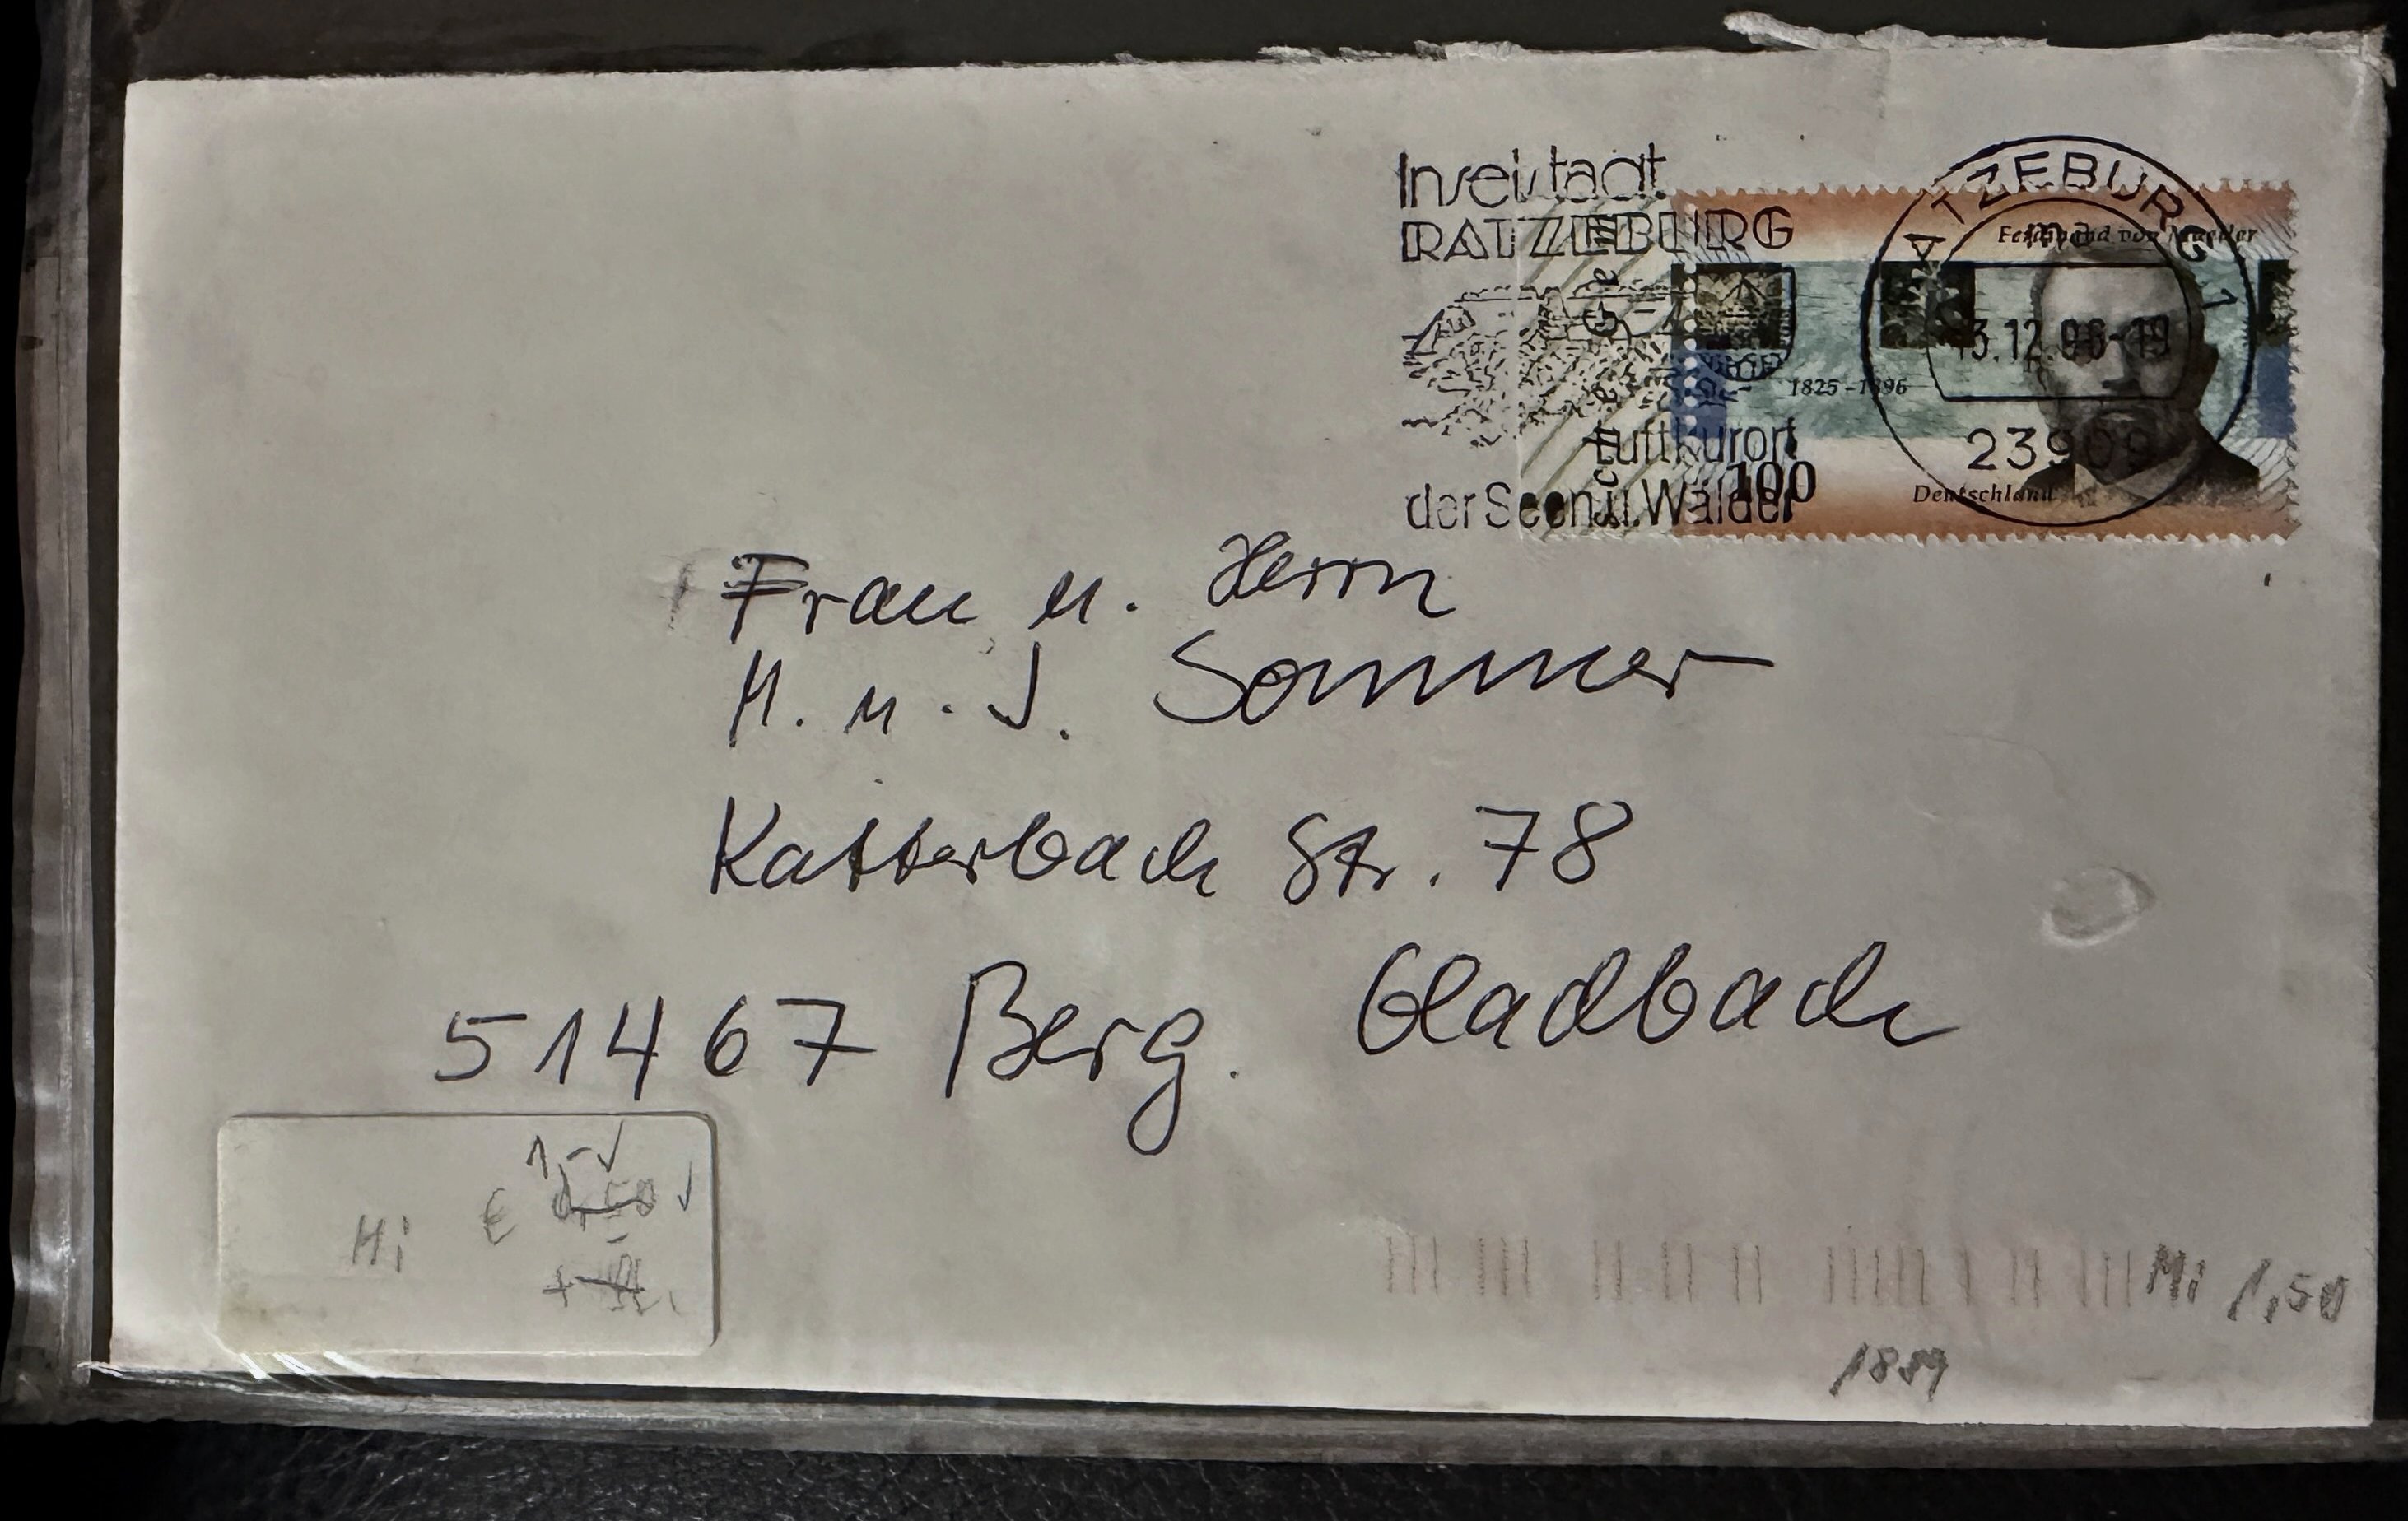 Inselstadt
RATZEBURG
Luftkurort
der Seen u. Wälder
RATZEBURG 1
ma
13.12.96-19
23909
Ferdinand von Mueller
1825-1896
100
Deutschland
Frau u. Herrn
H. u. J. Sommer
Katterbach Str. 78
51467 Berg. Gladbach
1,- √
Mi € 0,50 √
Mi 1,50
1889